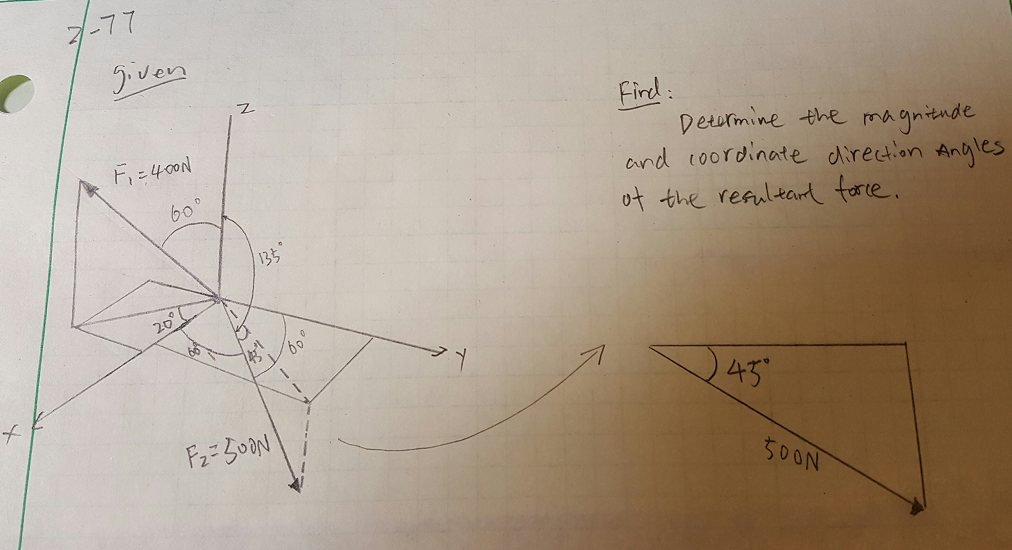 2-77
Given
Z
F₁=400N
60°
135°
20°
60°
45°
60°
Y
X
F₂=500N
Find:
Determine the magnitude
and coordinate direction Angles
of the resultant force.
45°
500N